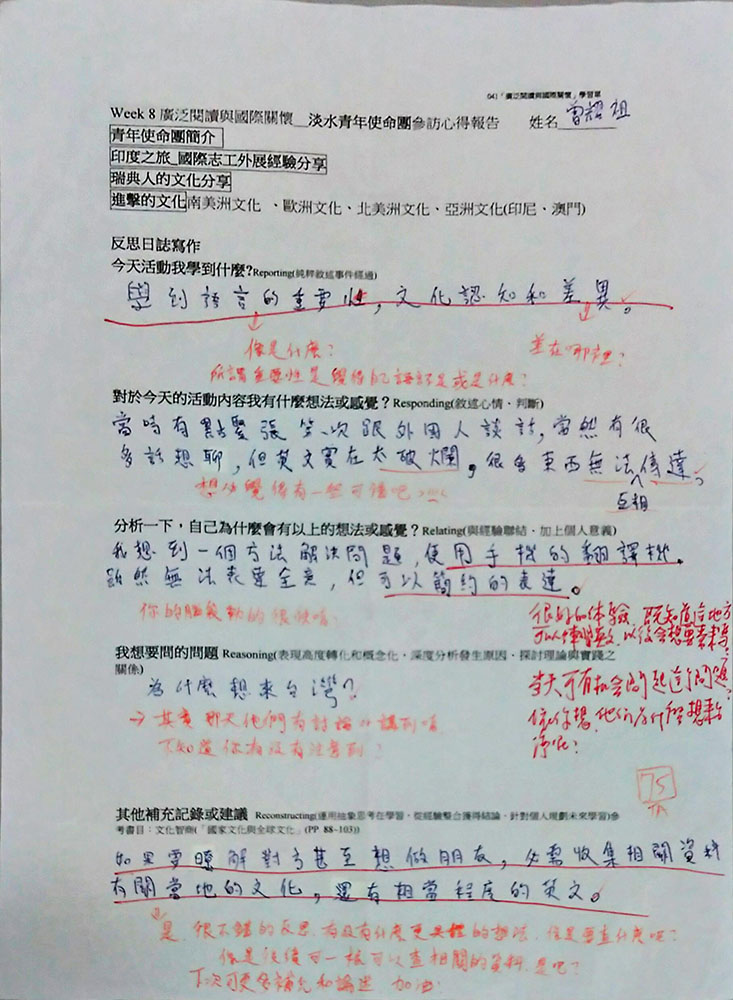 041「廣泛閱讀與國際關懷」學習單
Week 8 廣泛閱讀與國際關懷__淡水青年使命團參訪心得報告 姓名 曾耀祖
青年使命團簡介
印度之旅_國際志工外展經驗分享
瑞典人的文化分享
進擊的文化南美洲文化 、歐洲文化、北美洲文化、亞洲文化(印尼、澳門)
反思日誌寫作
今天活動我學到什麼?Reporting(純粹敘述事件經過)
學到語言的重要性，文化認知和差異。
像是什麼?
差在哪裡?
所謂重要性是覺得
或是什麼?
對於今天的活動內容我有什麼想法或感覺？Responding(敘述心情、判斷)
當時有點緊張第一次跟外國人談話,當然有很
多話想聊，但英文實在太破爛。很多東西無法傳達。
互相
覺得有一些可惜吧
分析一下，自己為什麼會有以上的想法或感覺？Relating(與經驗聯結、加上個人意義)
我想到一個方法解決問題，使用手機的翻譯機。
雖然無法表要全意，但可以簡約的表達。
你的腦筋動的很快唷
很好的体驗，既知道這地方
以後會想要
我想要問的問題 Reasoning(表現高度轉化和概念化、深度分析發生原因、探討理論與實踐之
關係)
為什麼想來台灣?
當天可有機會問起這問題
你想,他們為什麼想來台
灣呢?
→ 其實那天他們有討論
講到唷
不知道你有沒有注意到?
75
其他補充記錄或建議 Reconstructing(運用抽象思考在學習、從經驗整合獲得結論、針對個人規劃未來學習)參
考書目：文化智商(「國家文化與全球文化」(PP 88~103))
如果要瞭解對方甚至想做朋友，必需收集相關資料
有關當地的文化，還有相當程度的英文。
是 很不錯的反思,有沒有什麼更具體的想法,像是要查什麼呢?
像是後續可
可以查相關的資料 是吧?
下次可更多補充和論述 加油